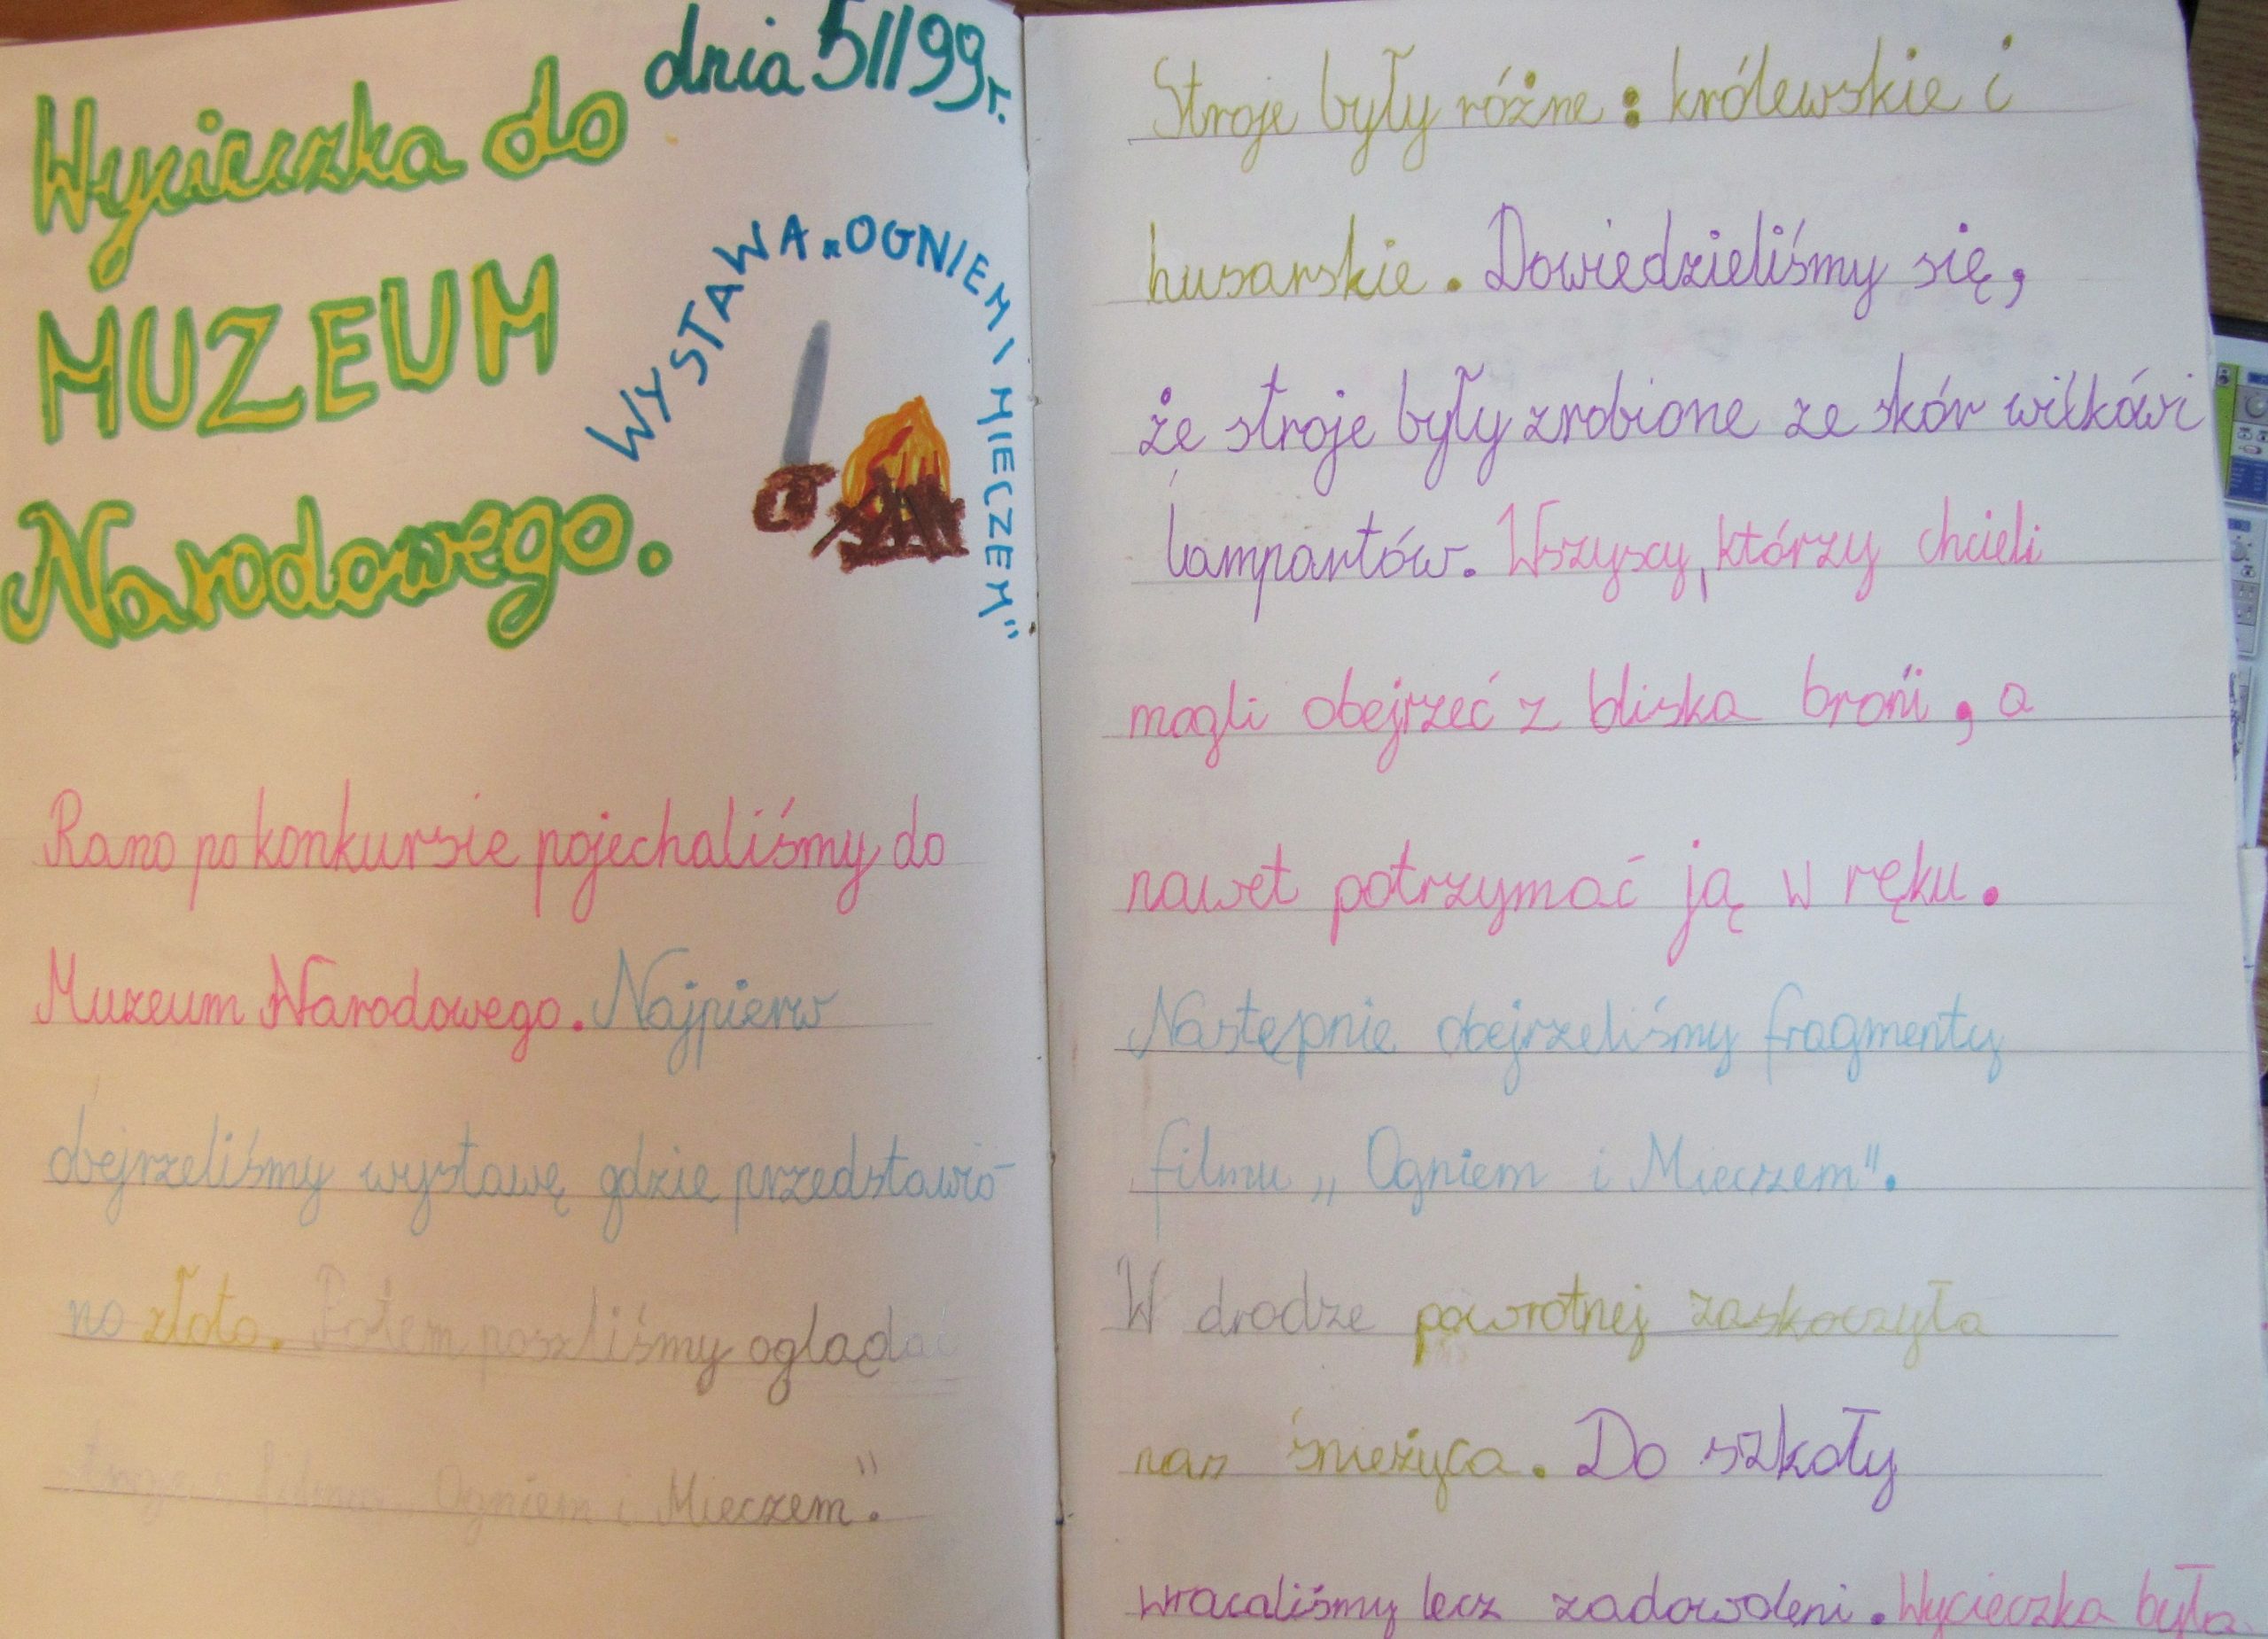 Wycieczka do
MUZEUM
Narodowego.
dnia 5II99r.
WYSTAWA „OGNIEM I MIECZEM"
Rano po konkursie pojechaliśmy do
Muzeum Narodowego. Najpierw
obejrzeliśmy wystawę gdzie przedstawio-
no złoto. Potem poszliśmy oglądać
stroje z filmu „Ogniem i Mieczem".
Stroje były różne: królewskie i
husarskie. Dowiedzieliśmy się,
że stroje były zrobione ze skór wilków i
lampartów. Wszyscy, którzy chcieli
mogli obejrzeć z bliska broń, a
nawet potrzymać ją w ręku.
Następnie obejrzeliśmy fragmenty
filmu „Ogniem i Mieczem".
W drodze powrotnej zaskoczyła
nas śnieżyca. Do szkoły
wracaliśmy lecz zadowoleni. Wycieczka była